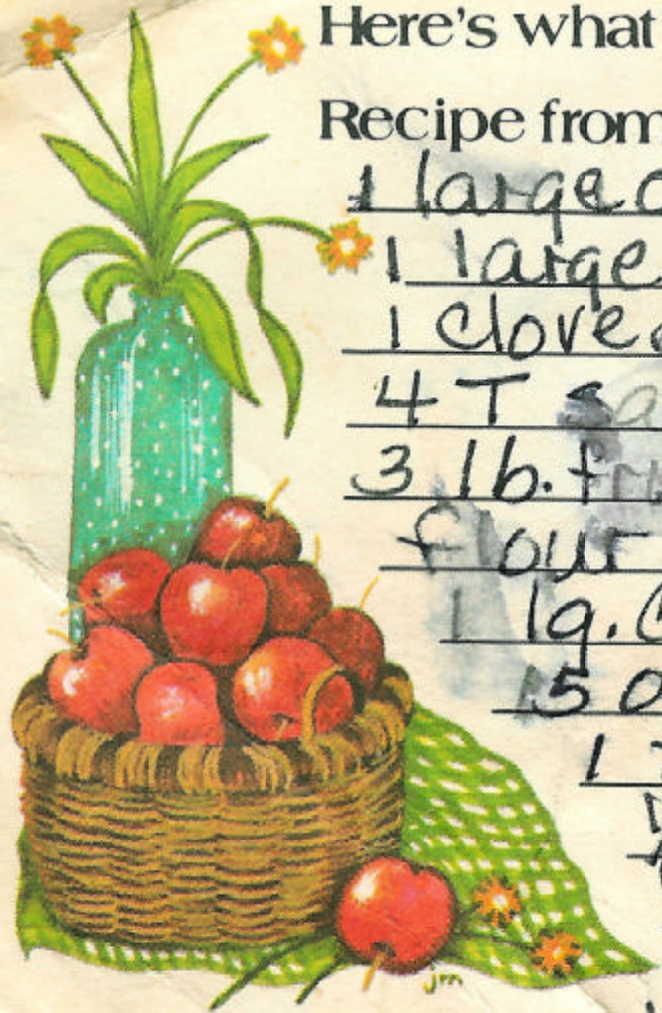 Here's what
Recipe from
1 large
1 large
1 clove
4 T
3 lb.
flour
1 lg.
50
1
jm